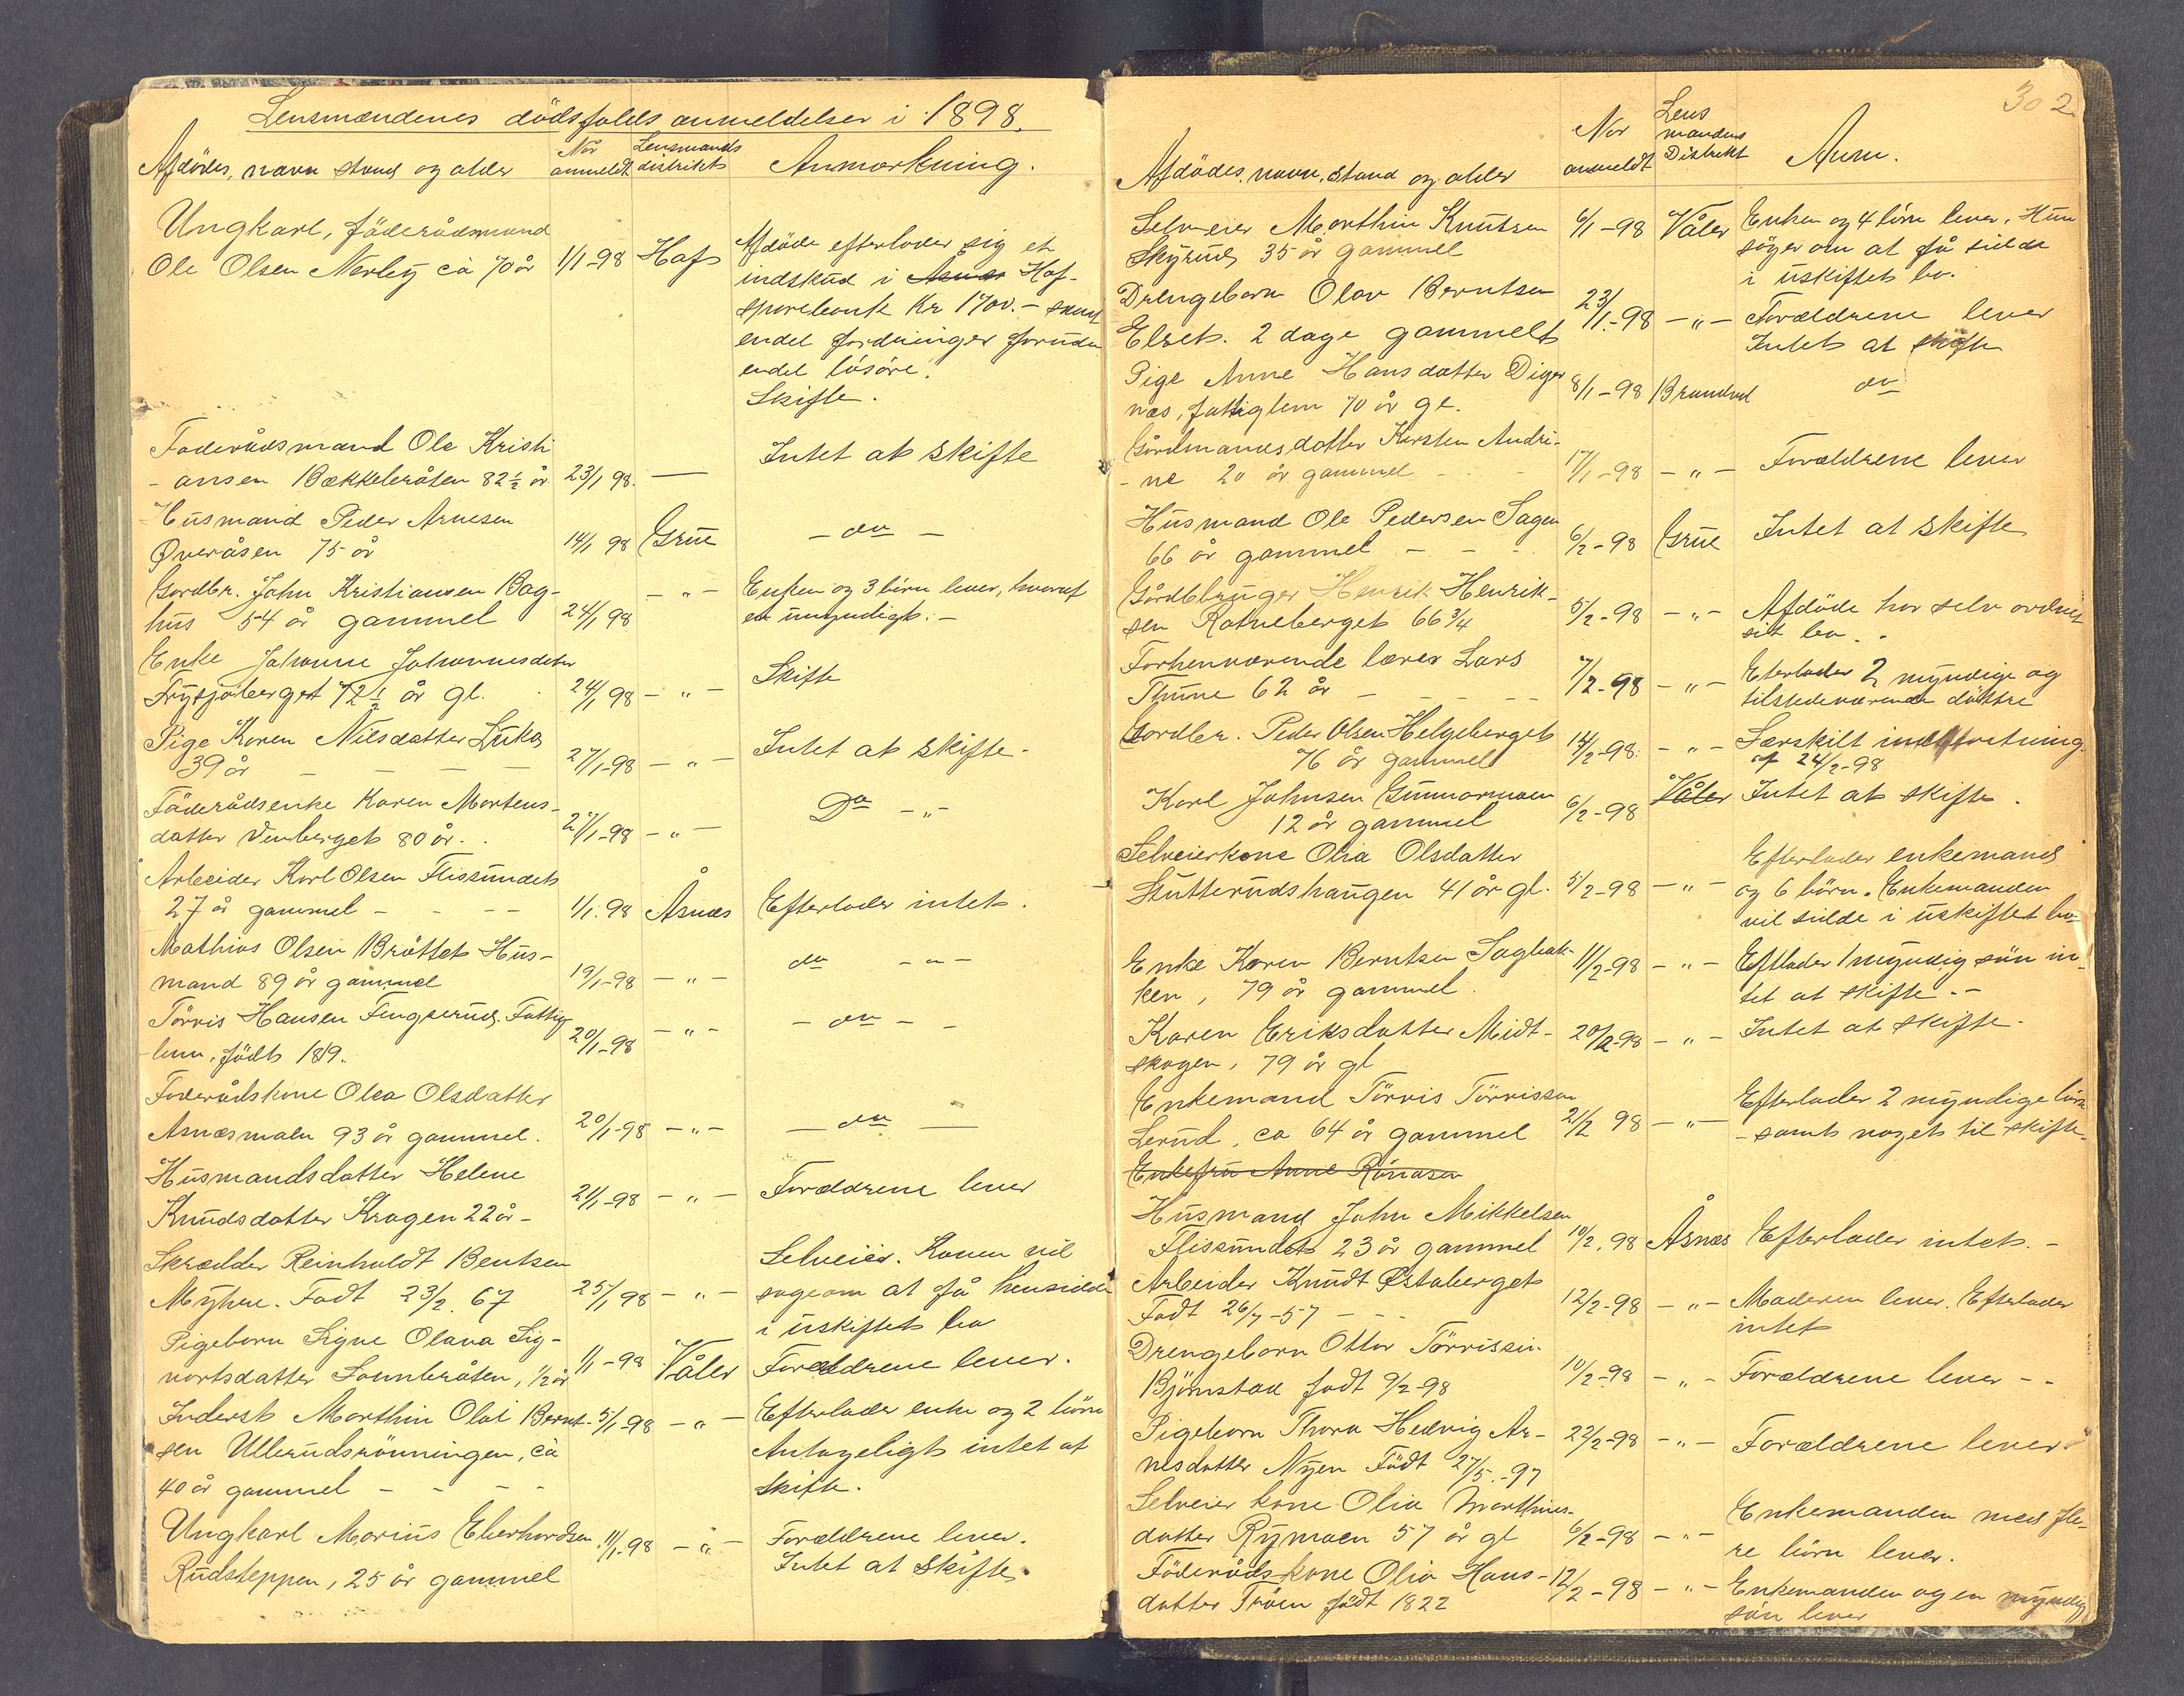 Lensmændenes dödsfalds anmeldelser i 1898.
Afdödes, navn stand og alder
Når anmeldt
Lensmands distrikt
Anmærkning.
Ungkarl, föderådsmand
Ole Olsen Nerby ca 70 år 1/1-98 Hof
Afdöde efterlader sig et
indskud i Hof-
sparebank Kr 1700.- samt
endel fordringer foruden
endel lösöre.
Skifte.
Foderådsmand Ole Kristi
-ansen Bækkebråten 82½ år 23/1 98. — Intet at skifte
Husmand Peder Arnesen
Overåsen 75 år 14/1 98 Grue - do -
Gordbr. John Kristiansen Bag-
hus 54 år gammel 24/1 98 - " - Enken og 3 börn lever, hvoraf
et umyndigt. -
Enke Johanne Johannesdatter
Frysjøberget 72½ år gl. 24/1 98 - " - Skifte
Pige Karen Nilsdatter Lukas
39 år - - - 27/1-98 - " - Intet at skifte.
Föderådsenke Karen Mortens-
datter Venberget 80 år. 27/1-98 - " - Do - " -
Arbeider Karl Olsen Flissundet
27 år gammel - - - 1/1.98 Åsnæs Efterlader intet.
Mathias Olsen Bråttet Hus-
mand 89 år gammel 19/1-98 - " - do - " -
Törris Hansen Fingserud. Fattig
lem, födt 1819. 20/1-98 - " - - do - -
Foderådskone Olea Olsdatter
Asnæsmoen 93 år gammel. 20/1-98 - " - - do -
Husmandsdatter Helene
Knudsdatter Kragen 22 år - 21/1-98 - " - Forældrene lever
Skrædder Reinholdt Bentsen
Myhre. Fodt 23/2. 67 25/1 98 - " -
Selveier. Konen vil
søge om at få hensidde
i uskiftet bo
Pigebarn Signe Olava Sig-
vartsdatter Sonnbråten, ½ år 1/1-98 Våler Forældrene lever.
Inderst Morthin Olai Bernt- 5/1-98 - " - Efterlader enke og 2 börn
sen Ullerudsrönningen, ca Antageligt intet at
40 år gammel - - - - skifte.
Ungkarl Marius Eberhardsen 11/1-98 - " - Forældrene lever.
Rudsteppen, 25 år gammel Intet at skifte.
302
Afdödes, navn, stand og alder
Nor anmeldt
Lens mandens Distrikt
Anm.
Selveier Morthin Knutsen 6/1-98 Våler Enken og 4 börn lever. Hun
Skyrud 35 år gammel söger om at få sidde
i uskiftet bo.
Drengebarn Olav Berntsen
Elset. 2 dage gammelt 23/1.-98 - " - Forældrene lever
Intet at skifte
Pige Anne Hansdatter Diger
næs, fattiglem 70 år gl. 8/1-98 Brandvol do
Gårdmandsdatter Kirsten Andri-
-ne 20 år gammel - - 17/1-98 - " - Forældrene lever
Husmand Ole Pedersen Sagen
66 år gammel - - - 6/2-98 Grue Intet at skifte
Gårdbruger Henrik Henrik-
sen Rotneberget 66¾ 5/2-98 - " - Afdöde har selv ordnet
sit bo. .
Forhenværende lærer Lars
Thune 62 år - - - - 7/2-98 - " - Eterlader 2 myndige og
tilstedeværende döttre
Gordbr. Peder Olsen Helgeberget
76 år gammel 14/2-98. - " - Særskilt indberetning
af 24/2-98
Karl Johnsen Gunnarmoen
12 år gammel 6/2-98 Våler Intet at skifte.
Selveierkone Olia Olsdatter
Stutterudshaugen 41 år gl. 5/2-98 - " -
Efterlader enkemand
og 6 börn. Enkemanden
vil sidde i uskiftet bo
Enke Karen Berntsen Sagbak-
ken, 79 år gammel. 11/2-98 - " - Eftlader 1 myndig sön in-
tet at skifte. -
Karen Eriksdatter Midt-
skogen, 79 år gl 20/2-98 - " - Intet at skifte.
Enkemand Törris Törrissen
Lerud, ca 64 år gammel 21/2 98 - " - Efterlader 2 myndige börn
- samt noget til skifte.
Enkefru Anne Rönåsen
Husmand John Mikkelsen
Flissundet 23 år gammel 10/2. 98 Åsnæs Efterlader intet. -
Arbeider Knudt Østaberget
Fodt 26/7-57 - - - 12/2-98 - " - Moderen lever. Efterlader
intet
Drengebarn Ottar Törrissen
Björnstad fodt 9/2-98 10/2-98 - " - Forældrene lever - -
Pigebarn Thora Hedvig Ar-
nesdatter Nyen Födt 27/5.-97 22/2-98 - " - Forældrene lever.
Selveier kone Olia Morthins-
datter Rymoen 57 år gl 6/2-98 - " - Enkemanden med fle-
re börn lever.
Föderådskone Olia Hans-
datter Tröen födt 1822 12/2-98 - " - Enkemanden og en myndig
sön lever